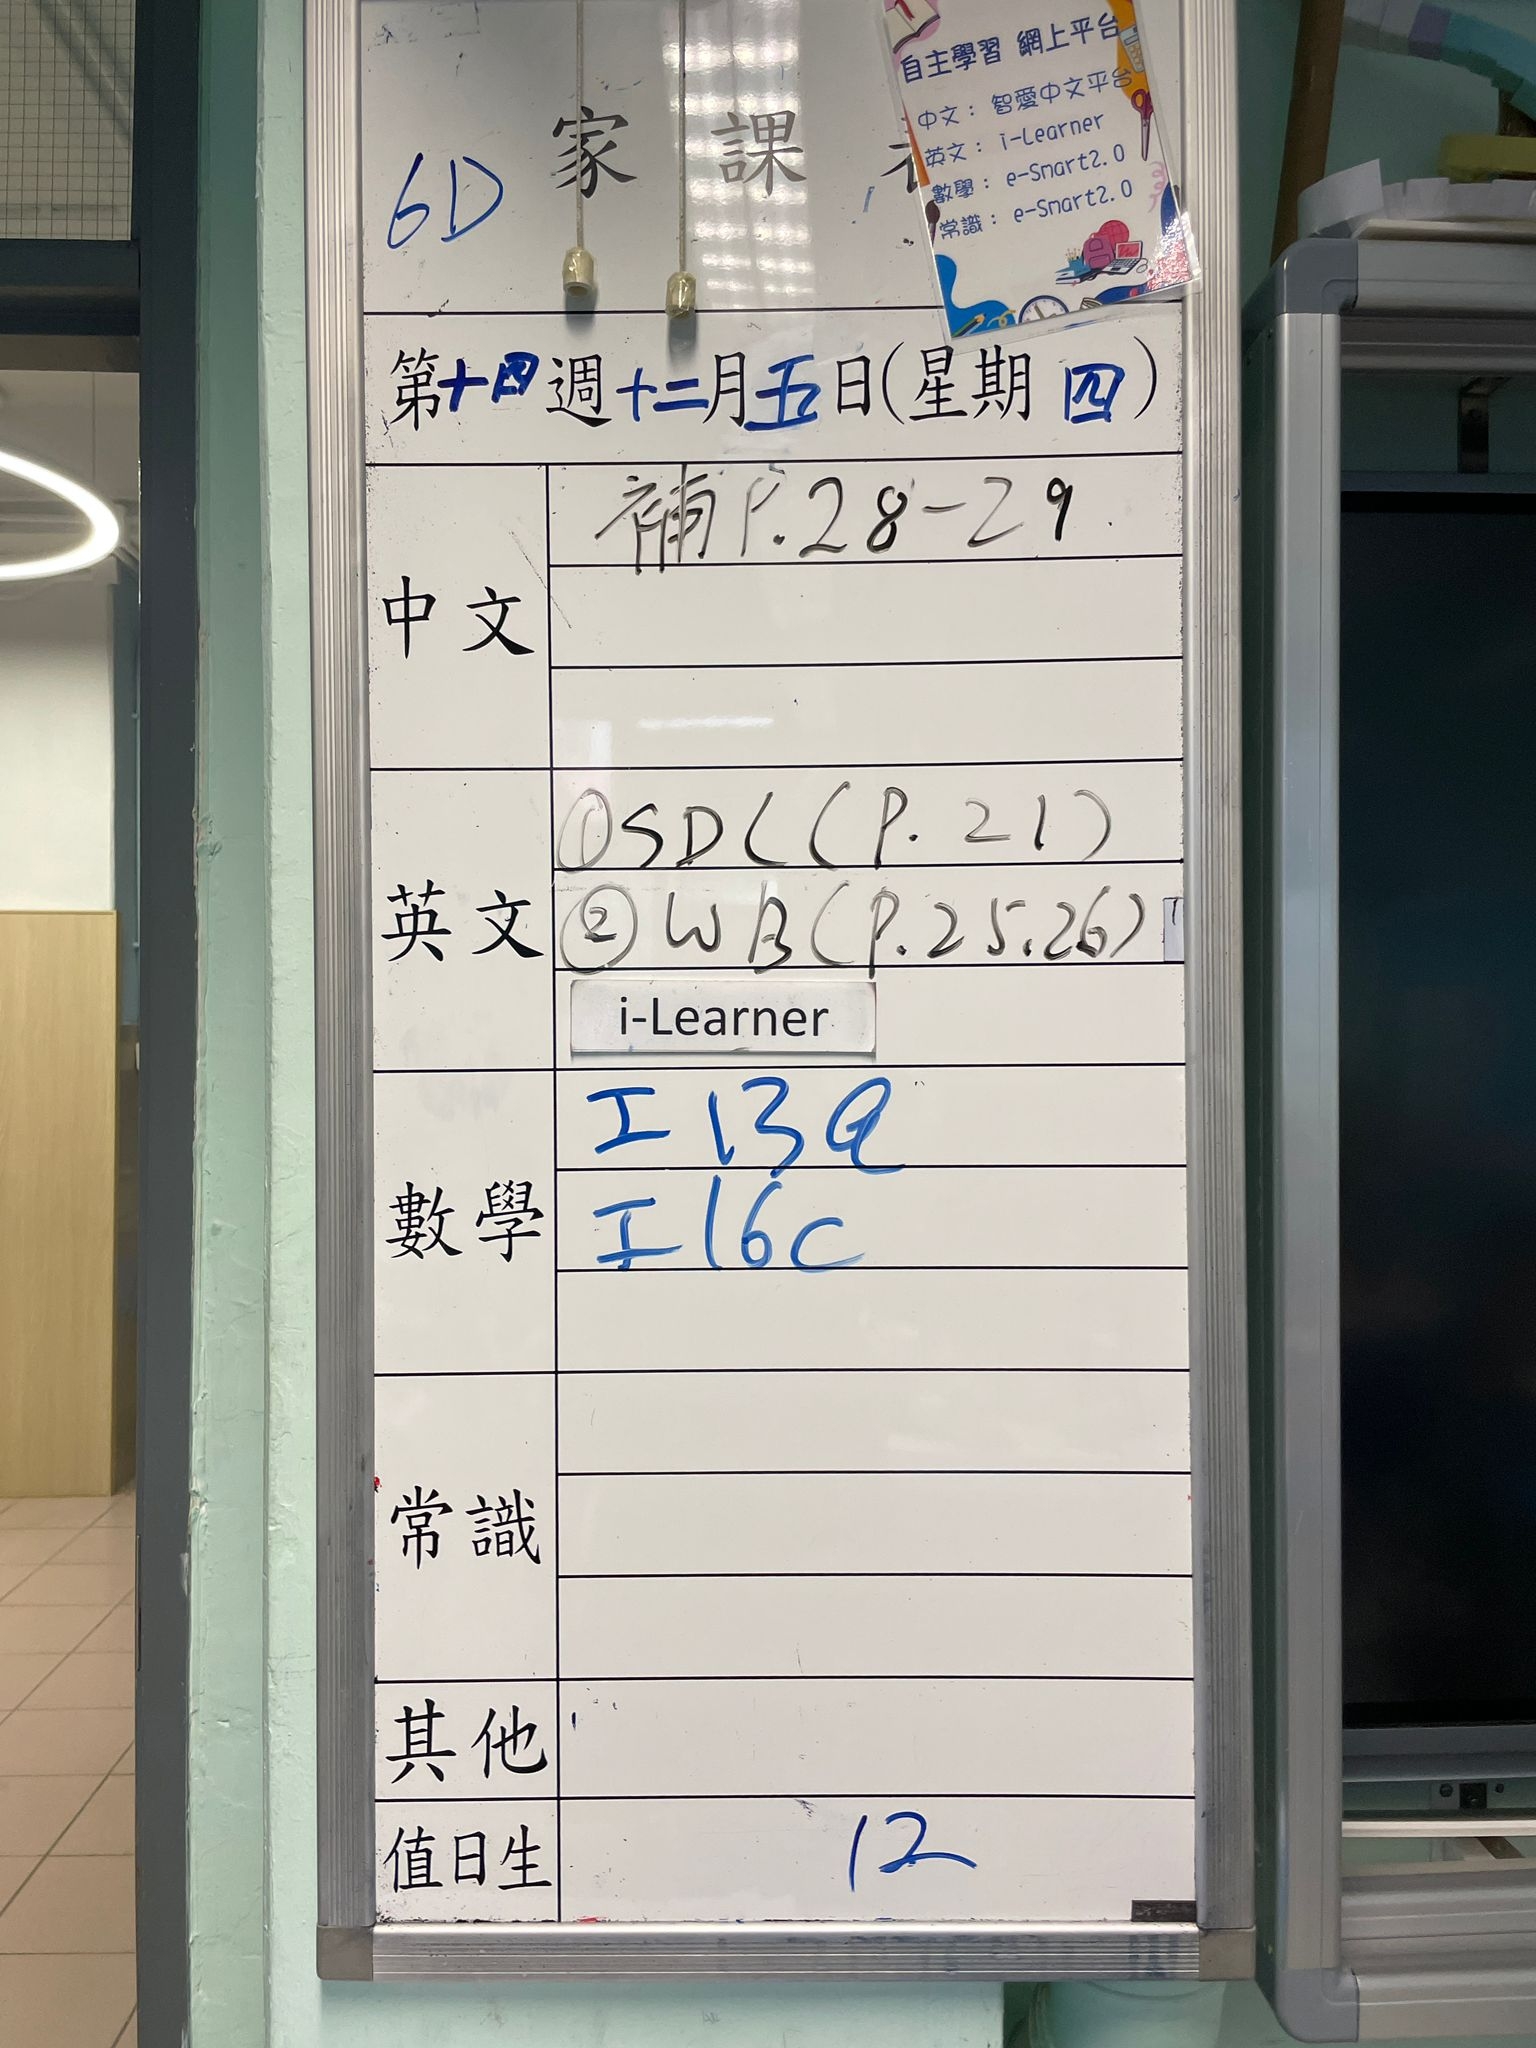 家課
6D
自主學習 網上平台
中文： 智愛中文平台
英文： i-Learner
數學： e-Smart2.0
常識： e-Smart2.0
第十四週十二月五日(星期四)
中文
補P.28-29
英文
①SDC(P.21)
②WB(P.25.26)
i-Learner
數學
I13Q
I16C
常識
其他
值日生
12